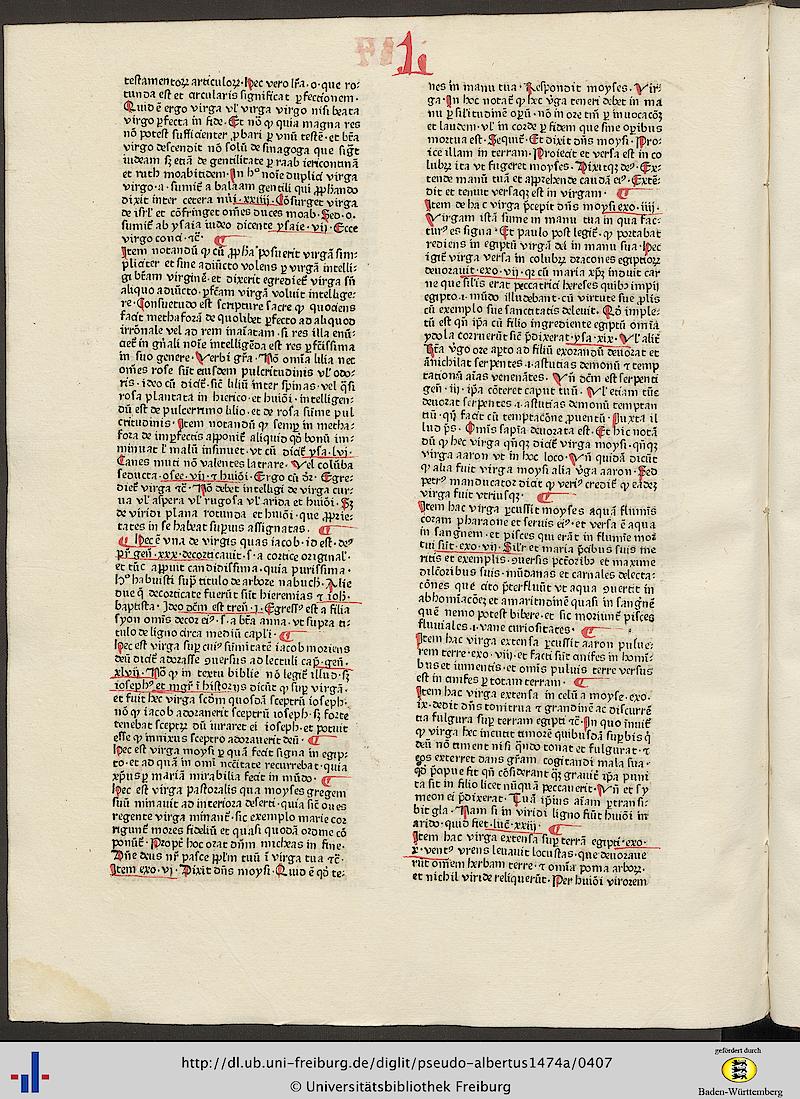 li
testamentoꝝ articuloꝝ. Hec vero lr̄a .o. que ro⸗
tunda est et circularis significat ꝑfectionem.
Quid ē ergo virga vl̓ virga virgo nisi beata
virgo ꝑfecta in fide. Et nō ꝙ quia magna res
nō potest sufficienter ꝓbari ꝑ vnū testē. et bt̄a
virgo descendit nō solū de sinagoga que sigt̄
iudeam sꝫ etiā de gentilitate ꝑ raab iericontinā
et ruth moabitidem. In h° noīe duplici virga
virgo .a. sumit̄ a balaam gentili qui ꝓphando
dixit inter cetera nūi .xxiiij. Cōsurget virga
de isrl̓ et cōfringet om̄es duces moab. Sed .o.
sumit̄ ab ysaia iudeo dicente ysaie .vij. Ecce
virgo conci. ⁊c̄.
Item notandū ꝙ cū ꝓpha posuerit virgā sim⸗
pliciter et sine adiūcto volens ꝑ virgā intelli⸗
gi bt̄am virginē. et dixerit egrediet̄ virga sn̄
aliquo adiūcto. ꝑfc̄am virgā voluit intellige⸗
re. Consuetudo est scripture sacre ꝙ quociens
facit methaforā de quolibet ꝑfecto ad aliquod
irrōnale vel ad rem inaīatam. si res illa enū⸗
ciet̄ in gn̄ali noīe intelligēda est res ꝑfc̄issima
in suo genere. Verbi gr̄a. Nō omīa lilia nec
om̄es rose sūt eiusdem pulcritudinis vl̓ odo⸗
ris. ideo cū dicit̄. sic̄ liliū inter spinas. vel q̄si
rosa plantata in hierico. et huiōi. intelligen⸗
dū est de pulcerrimo lilio. et de rosa sūme pul
critudinis. Item notandū ꝙ semꝑ in metha⸗
fora de imꝑfectis apponit̄ aliquid qd̓ bonū im⸗
minuat vl̓ malū insinuet. vt cū dicit̄ ysa. lvi.
Canes muti nō valentes latrare. Vel colūba
seducta. osee .vij. ⁊ huiōi. Ergo cū dr̄. Egre⸗
diet̄ virga ⁊c̄. Nō debet intelligi de virga cur⸗
ua vl̓ aspera vl̓ rugosa vl̓ arida et huiōi. Sꝫ
de viridi plana rotunda et huiōi. que ꝓprie⸗
tates in se habeat supius assignatas.
Hec ē vna de virgis quas iacob .id est. deꝰ
pr̄ gen̄ .xxx. decorticauit .s. a cortice original̓.
et tūc appuit candidissima. quia purissima.
h° habuisti sup̄ titulo de arbore nabuch̄. Alie
due q̄ decorticate fuerūt sūt hieremias ⁊ ioh̄.
baptista. Ideo dc̄m est tren̄ .i. Egressꝰ est a filia
syon om̄is decor eiꝰ .s. a bt̄a anna. vt supra ti⸗
tulo de ligno circa mediū capl̓i.
Hec est virga sup cuiꝰ sūmitatē iacob moriens
deū dicit̄ adorasse ꝯuersus ad lectuli cap̄. gen̄.
xlvij. Nō ꝙ in textu biblie nō legit̄ illud. sꝫ
iosephꝰ et mgr̄ ī historijs dicūt ꝙ sup virgā.
et fuit hec virga scd̄m quosdā sceptrū ioseph.
nō ꝙ iacob adorauerit sceptrū ioseph. sꝫ forte
tenebat sceptꝝ dū iuraret ei ioseph. et potuit
esse ꝙ innixus sceptro adorauerit deū.
Hec est virga moysi ꝑ quā fecit signa in egip⸗
to. et ad quā in omī nc̄citate recurrebat. quia
xp̄us ꝑ mariā mirabilia fecit in mūdo.
Hec est virga pastoralis qua moyses gregem
suū minauit ad interiora deserti. quia sic̄ oues
regente virga minant̄. sic exemplo marie cor
rigunt̄ mores fideliū et quasi quodā ordine cō
ponūt̄. Propē hoc orat dn̄m micheas in fine.
Dn̄e deus nr̄ pasce ppl̓m tuū ī virga tua ⁊c̄.
Item exo .vj. Dixit dn̄s moysi. Quid ē qd̓ te⸗
nes in manu tua. Respondit moyses. Vir⸗
ga. In hoc notat̄ ꝙ hec v̄ga teneri debet in ma
nu ꝑ sil̓itudinē opū. nō in ore tm̄ ꝑ inuocacōꝫ
et laudem. vl̓ in corde ꝑ fidem que sine opibus
mortua est. Sequit̄. Et dixit dn̄s moysi. Pro⸗
ice illam in terram. Proiecit et versa est in co
lubꝝ ita vt fugeret moyses. Dixitqꝫ deꝰ. Ex⸗
tende manū tuā et apprehende caudā eiꝰ. Extē⸗
dit et tenuit versaqꝫ est in virgam.
Item de hac virga p̄cepit dn̄s moysi exo. iiij.
Virgam istā sume in manu tua in qua fac⸗
turꝰ es signa. Et paulo post legit̄. ꝙ portabat
rediens in egiptū virgā dei in manu sua. Hec
igit̄ virga versa in colubꝝ dracones egiptioꝝ
deuorauit. exo .vij. qꝫ cū maria xp̄ꝫ induit car
ne que sil̓is erat peccatrici hereses quibꝰ impij
egipto .i. mūdo illudebant. cū virtute sue ꝓlis
cū exemplo sue sanctitatis deleuit. Qd̓ imple⸗
tū est qn̄ ip̄a cū filio ingrediente egiptū omīa
ydola corruerūt sic̄ p̄dixerat. ysa .xix. Vl̓ alit̄
bt̄a v̄go ore aꝑto ad filiū exorandū deuorat et
ānichilat serpentes .i. astutias demonū ⁊ temp
tationū aīas venenātes. Vn̄ dc̄m est serpenti
gen̄ .iij. ip̄a cōteret caput tuū. Vl̓ etiam tūc
deuorat serpentes .i. astutias demonū temptan
tiū. qn̄ facit cū temptacōne ꝓuentū. Iuxta il
lud ps̄. Omīs sapīa deuorata est. Et hic notā
dū ꝙ hec virga qn̄qꝫ dicit̄ virga moysi. qn̄qꝫ
virga aaron vt in hoc loco. Vn̄ quidā dicūt
ꝙ alia fuit virga moysi alia v̄ga aaron. Sed
petrꝰ manducator dicit ꝙ veriꝰ credit̄ ꝙ eadeꝫ
virga fuit vtriusqꝫ.
Item hac virga ꝑcussit moyses aquā flumīs
coram pharaone et seruis eiꝰ. et versa ē aqua
in sanguem. et pisces qui erāt in flumīe mor
tui sūt. exo .vij. Sil̓r et maria p̄cibus suis me
ritis et exemplis ꝯuersis pctōribꝰ et maxime
dilc̄oribus suis. mūdanas et carnales delecta⸗
cōnes que cito p̄terfluūt vt aqua ꝯuertit in
abhomīacōeꝫ et amaritudinē quasi in sangnē
quē nemo potest bibere. et sic moriunt̄ pisces
fluuiales .i. vane curiositates.
Item hac virga extensa ꝑcussit aaron pulue⸗
rem terre. exo. viij. et facti sūt cinifes in homī⸗
bus et iumentis. et omīs puluis terre versus
est in cinifes ꝑ totam terram.
Item hac virga extensa in celū a moyse. exo.
ix. dedit dn̄s tonitrua ⁊ grandinē ac discurrē
tia fulgura sup terram egipti ⁊c̄. In quo īnuit̄
ꝙ virga hec incutit timorē quibusdā supbis q̄
deū nō timent nisi qn̄do tonat et fulgurat. ⁊
eos exterret dans gr̄am cogitandi mala sua.
qd̓ p̄opue fit qn̄ cōsiderant qꝫ grauit̄ ip̄a puni
ta sit in filio licet nūquā peccauerit. Vn̄ et sy
meon ei p̄dixerat. Tuā ip̄ius aīam ꝑtransi⸗
bit gla. Nam si in viridi ligno fiūt huiōi in
arido quid fiet. luc̄ .xxiij.
Item hac virga extensa sup terrā egipti. exo.
x. ventꝰ vrens leuauit locustas. que deuoraue
rūt om̄em herbam terre. ⁊ omīa poma arboꝝ.
et nichil viride reliquerūt. Per huiōi virorem
http://dl.ub.uni-freiburg.de/diglit/pseudo-albertus1474a/0407
© Universitätsbibliothek Freiburg
gefördert durch
Baden-Württemberg